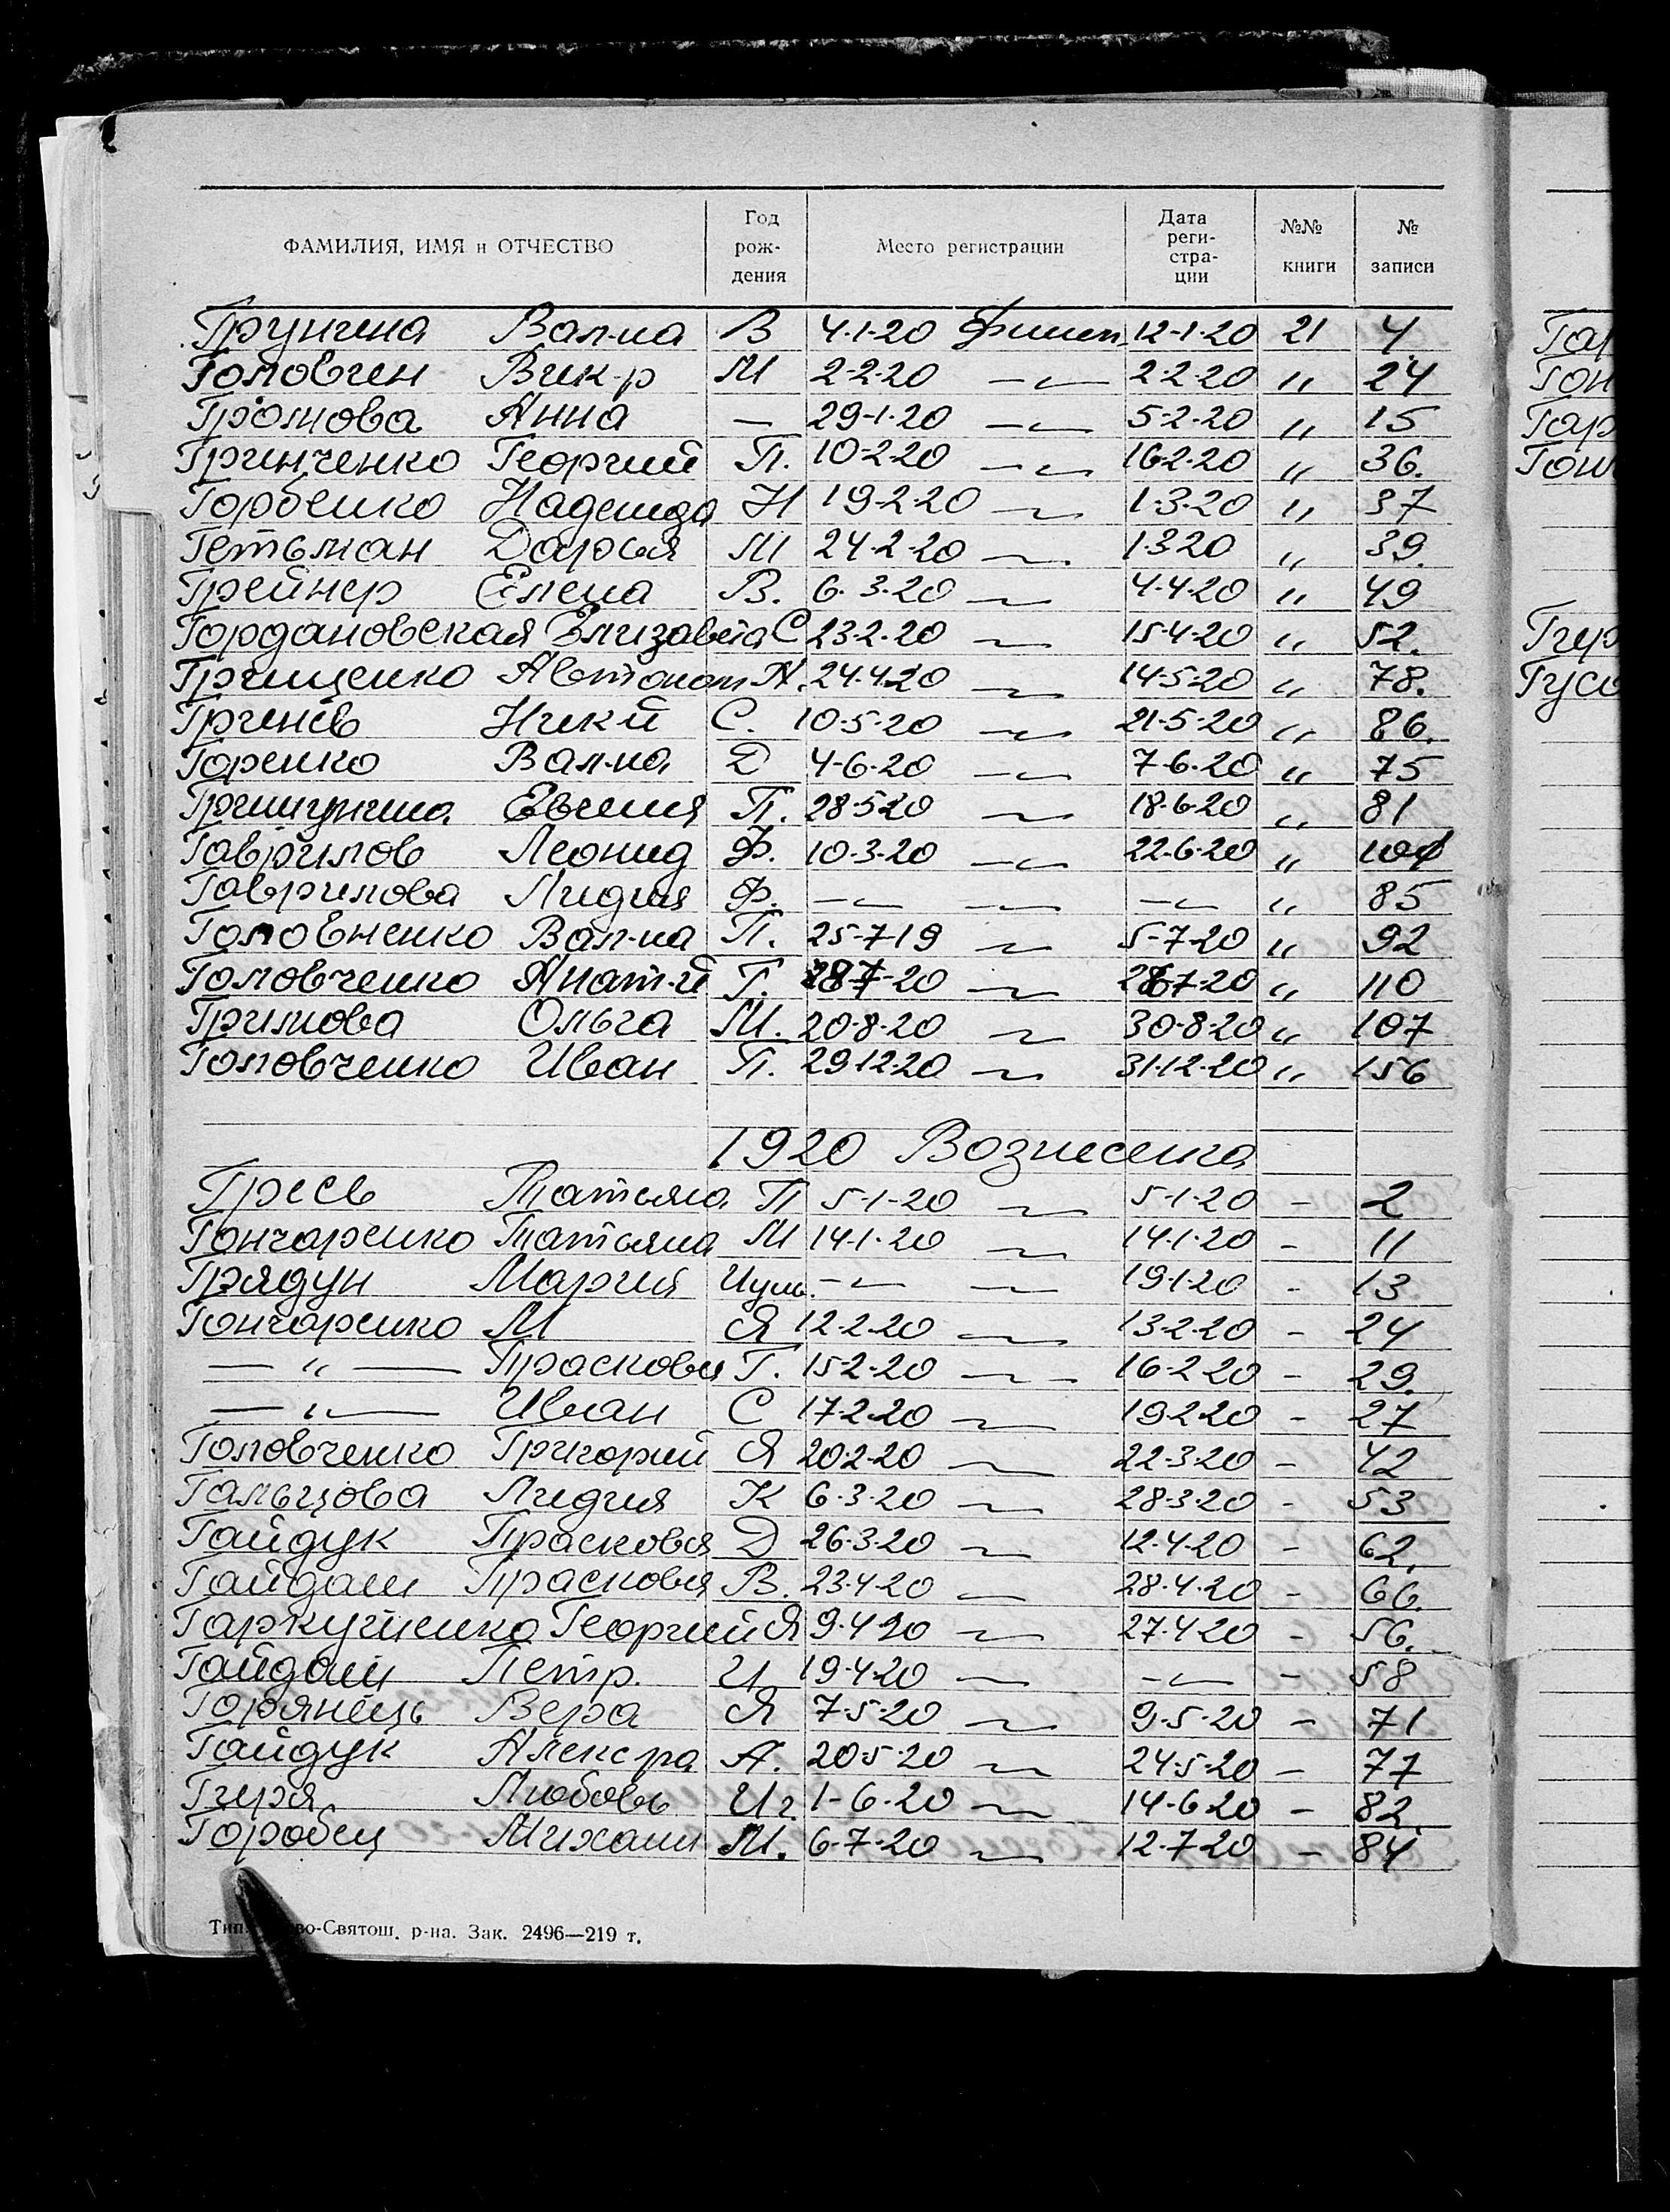 ФАМИЛИЯ, ИМЯ и ОТЧЕСТВО Год рож- дения Место регистрации Дата реги- стра- ции №№ книги № записи
Вал-на В 4-1-20 12-1-20 21 4
Головчен Вик-р М 2-2-20 -〃- 2-2-20 〃 24
Громова Анна — 29-1-20 -〃- 5-2-20 〃 15
Гринченко Георгий П. 10-2-20 -〃- 16-2-20 〃 36.
Горбенко Надежда Н 19-2-20 -〃- 1-3-20 〃 37
Гетьман Дарья М 24-2-20 -〃- 1320 〃 39.
Грейнер Елена В. 6.3.20 -〃- 4-4-20 〃 49
Гордановская Елизавета С 23-2-20 -〃- 15-4-20 〃 52.
Грищенко Автоном А. 24.4.20 -〃- 14-5-20 〃 78.
Гринёв Ник-й С. 10-5-20 -〃- 21-5-20 〃 86.
Горенко Вал-на Д 4-6-20 -〃- 7-6-20 〃 75
Евгения П. 28520 -〃- 18-6-20 〃 81
Гаврилов Леонид Ф. 10-3-20 -〃- 22-6-20 〃
Гаврилова Лидия Ф. -〃- -〃- -〃- 〃 85
Головненко Вал-на П. 25-7-19 -〃- 5-7-20 〃 92
Головченко Анат-й Г. 287-20 -〃- 7-20 〃 110
Гримова Ольга М. 20-8-20 -〃- 30-8-20 〃 107
Головченко Иван П. 29-12-20 -〃- 31-12-20 〃 156
1920 Вознесенка
Гресь Татьяна П 5-1-20 -〃- 5-1-20 - 2
Гончаренко Татьяна М 14-1-20 -〃- 14-1-20 - 11
Грядун Мария -〃- -〃- 19-1-20 - 13
Гончаренко М Я 12-2-20 -〃- 13-2-20 - 24
— 〃 — Прасковья Г. 15-2-20 -〃- 16-2-20 - 29.
— 〃 — Иван С 17-2-20 -〃- 19-2-20 - 27
Головченко Григорий Я 20-2-20 -〃- 22-3-20 - 42
Гальцова Лидия К 6-3-20 -〃- 28-3-20 - 53
Гайдук Прасковья Д 26-3-20 -〃- 12-4-20 - 62.
Гайдаш Прасковья В. 23-4-20 -〃- 28-4-20 - 66.
Георгий Я 9-4-20 -〃- 27-4-20 - 56.
Гайдаш Петр. И 19-4-20 -〃- -〃- - 58
Горянець Вера Я 7-5-20 -〃- 9-5-20 - 71
Гайдук Алекс-ра А. 20-5-20 -〃- 24-5-20 - 77
Гиря Любовь Иг. 1-6-20 -〃- 14-6-20 - 82.
Горобец Михаил М. 6-7-20 -〃- 12-7-20 - 84
Тип. во-Святош. р-на. Зак. 2496—219 т.
Гар
Гон
Гар
Гон
Гир
Гусе